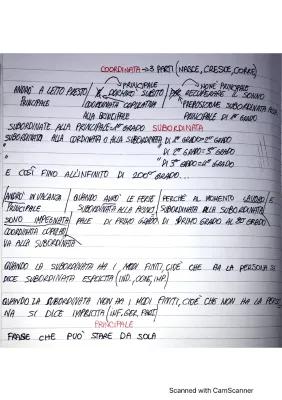 COORDINATA → 3 PARTI (NASCE, CRESCE, CORRE)
PRINCIPALE NOME PRINCIPALE
ANDRÒ A LETTO PRESTO / E DORMIRÒ SUBITO / PER RECUPERARE IL SONNO
PRINCIPALE COORDINATA COPULATIVA PREPOSIZIONE SUBORDINATA ALLA
ALLA PRINCIPALE PRINCIPALE DI 1º GRADO
SUBORDINATE ALLA PRINCIPALE = 1º GRADO SUBORDINATA
SUBORDINATA ALLA CORDINATA O ALLA SUBORDINATA DI 1º GRADO = 2º GRADO
" DI 2º GRADO = 3º GRADO
" DI 3º GRADO = 4º GRADO
E COSÌ FINO ALL'INFINITO DI 200º GRADO...
ANDRÒ IN VACANZA / QUANDO AVRÒ LE FERIE / PERCHÉ AL MOMENTO LAVORO / E
PRINCIPALE SUBORDINATA ALLA PRINCI SUBORDINATA ALLA SUBORDINATA
SONO IMPEGNATA PALE DI PRIMO GRADO DI PRIMO GRADO AL 2º GRADO
COORDINATA COPULATI
VA ALLA SUBORDINATA
QUANDO LA SUBORDINATA HA I MODI FINITI, CIOÈ CHE HA LA PERSONA SI
DICE SUBORDINATA ESPLICITA (IND., CONG, IMP.)
QUANDO LA SUBORDINATA NON HA I MODI FINITI, CIOÈ CHE NON HA LA PERSO
NA SI DICE IMPLICITA (INF. GER. PART.)
PRINCIPALE
FRASE CHE PUÒ STARE DA SOLA
Scanned with CamScanner